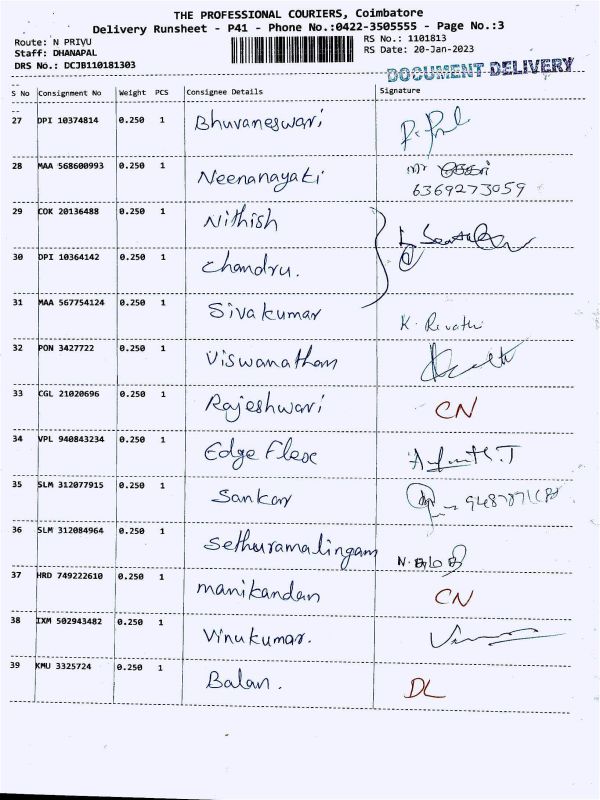 THE PROFESSIONAL COURIERS, Coimbatore
Delivery Runsheet - P41 - Phone No.:0422-3505555 - Page No.:3
Route: N PRIVU
Staff: DHANAPAL
DRS No.: DCJB110181303
RS No.: 1101813
RS Date: 20-Jan-2023
DOCUMENT DELIVERY
S No Consignment No Weight PCS Consignee Details Signature
27 DPI 10374814 0.250 1 Bhuvaneswari
28 MAA 568600993 0.250 1 Neenanayaki Mr
6369273059
29 COK 20136488 0.250 1 Nithish
30 DPI 10364142 0.250 1 Chandru.
31 MAA 567754124 0.250 1 Sivakumar K. Revathi
32 PON 3427722 0.250 1 Viswanathan
33 CGL 21020696 0.250 1 Rajeshwari CN
34 VPL 940843234 0.250 1 Edge Flex
35 SLM 312077915 0.250 1 Sankar
36 SLM 312084964 0.250 1 Sethuramalingam
37 HRD 749222610 0.250 1 manikandan CN
38 IXM 502943482 0.250 1 Vinukumar.
39 KMU 3325724 0.250 1 Balan. DL